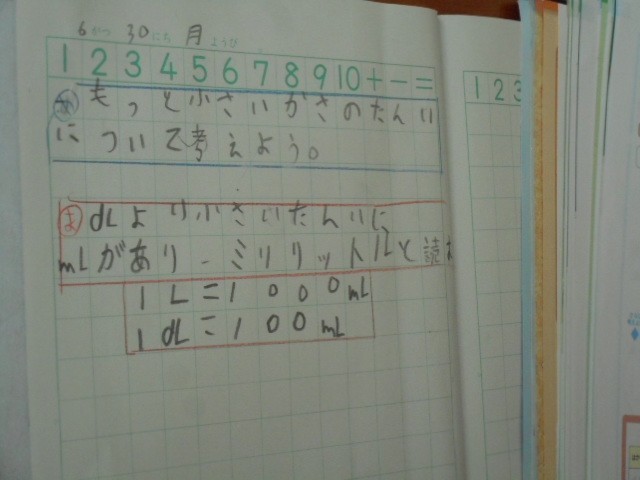 6がつ 30にち 月ようび
1 2 3 4 5 6 7 8 9 10 + - =
め もっと小さいかさのたんい
について考えよう。
ま dLより小さいたんいに
mLがあり、ミリリットルと読
1L=1000mL
1dL=100mL
1 2 3